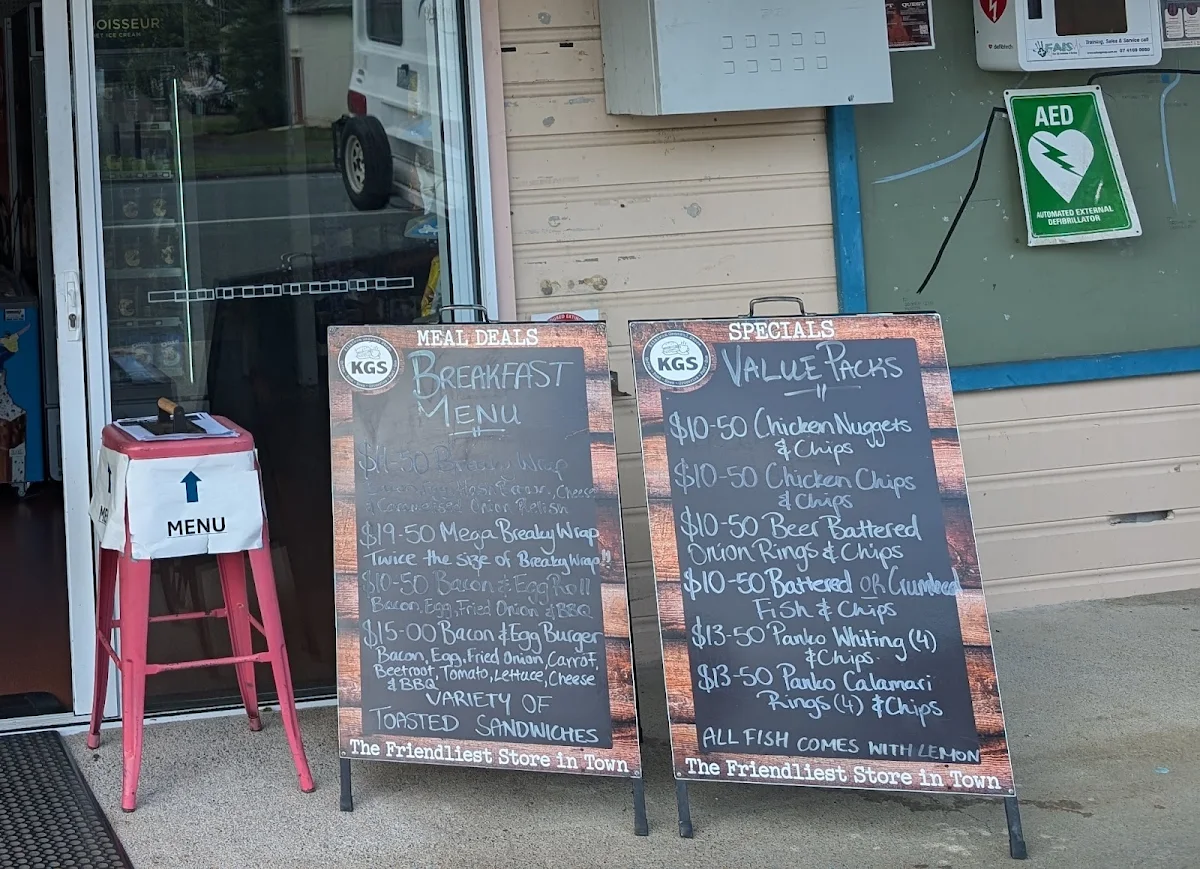 OISSEUR
ET ICE CREAM
MENU
MEAL DEALS
KGS
BREAKFAST
MENU
$11-50 Breaky Wrap
Cheese
& Caramalised Onion Relish
$19-50 Mega Breaky Wrap
Twice the size of Breaky Wrap"
$10-50 Bacon & Egg Roll
Bacon, Egg, Fried Onion & BBQ
$15-00 Bacon & Egg Burger
Bacon, Egg, Fried Onion, Carrot,
Beetroot, Tomato, Lettuce, Cheese
& BBQ
VARIETY OF
TOASTED SANDWICHES
The Friendliest Store in Town
SPECIALS
KGS
VALUE PACKS
$10-50 Chicken Nuggets
& Chips
$10-50 Chicken Chips
& Chips
$10-50 Beer Battered
Onion Rings & Chips
$10-50 Battered OR Crumbed
Fish & Chips
$13-50 Panko Whiting (4)
& Chips
$13-50 Panko Calamari
Rings (4) & Chips
ALL FISH COMES WITH LEMON
The Friendliest Store in Town
FAIS
Training, Sales & Service call
AED
AUTOMATED EXTERNAL
DEFIBRILLATOR